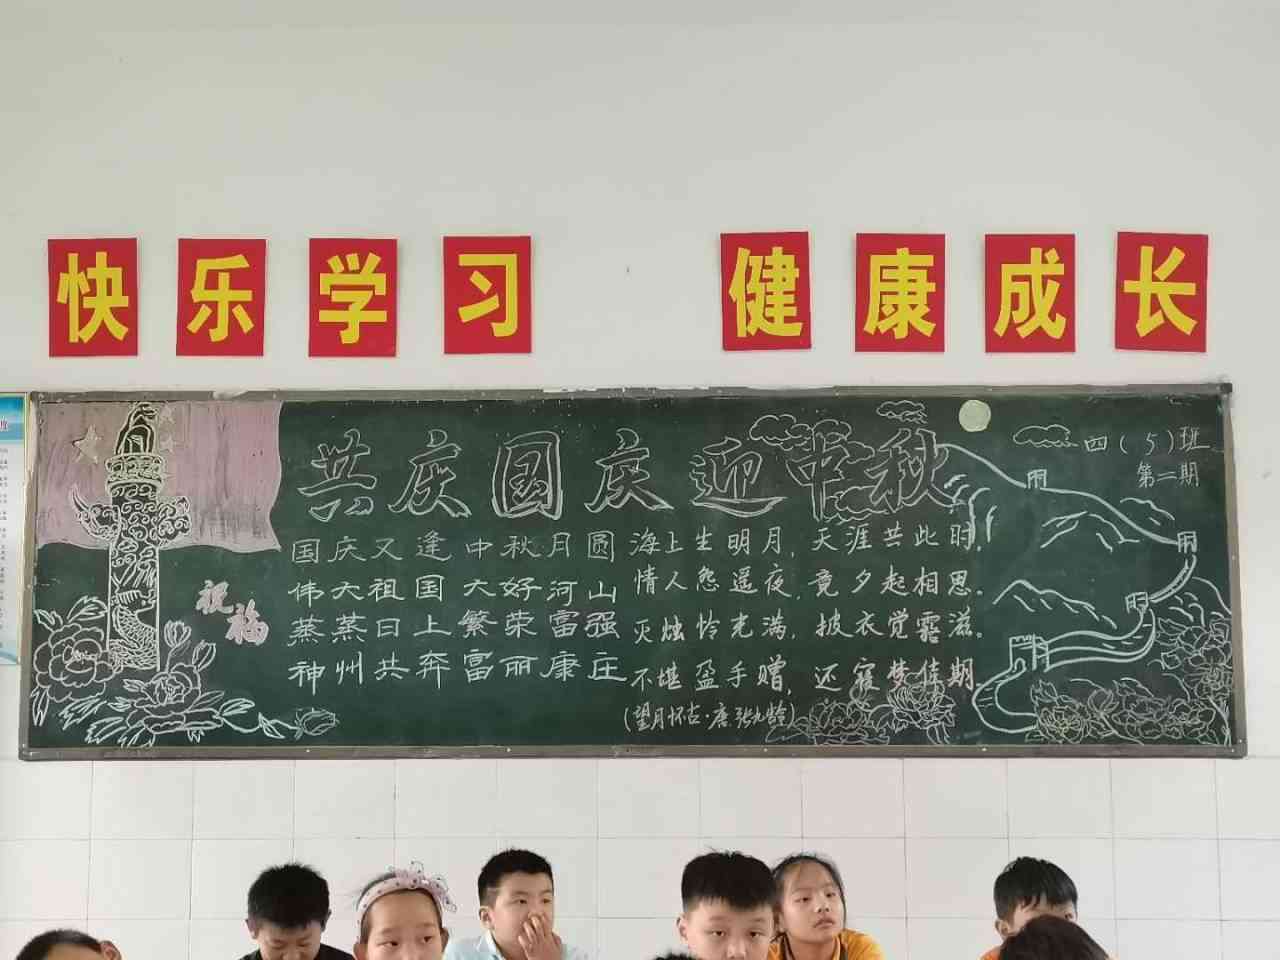 快乐学习 健康成长
共庆国庆迎中秋
四(5)班
第二期
祝福
国庆又逢中秋月圆
伟大祖国大好河山
蒸蒸日上繁荣富强
神州共奔富丽康庄
海上生明月,天涯共此时,
情人怨遥夜,竟夕起相思。
灭烛怜光满,披衣觉露滋。
不堪盈手赠,还寝梦佳期
(望月怀古·唐张九龄)